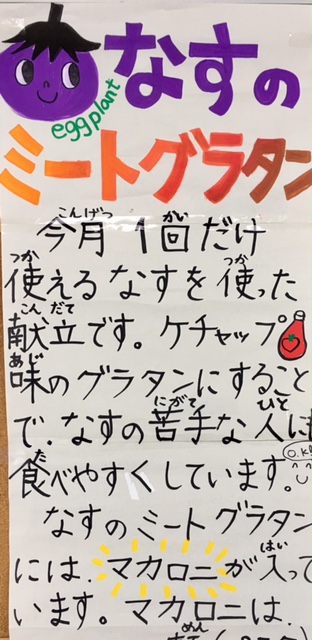 なすの
eggplant
ミートグラタン
こんげつ
今月1回だけ
つか つか
使えるなすを使った
こん だて
献立です。ケチャップ
あじ
味のグラタンにすること
にがて ひと
で、なすの苦手な人にも
O.K!
た
食べやすくしています。
なすのミートグラタン
はい
には、マカロニが入って
います。マカロニは、
めん